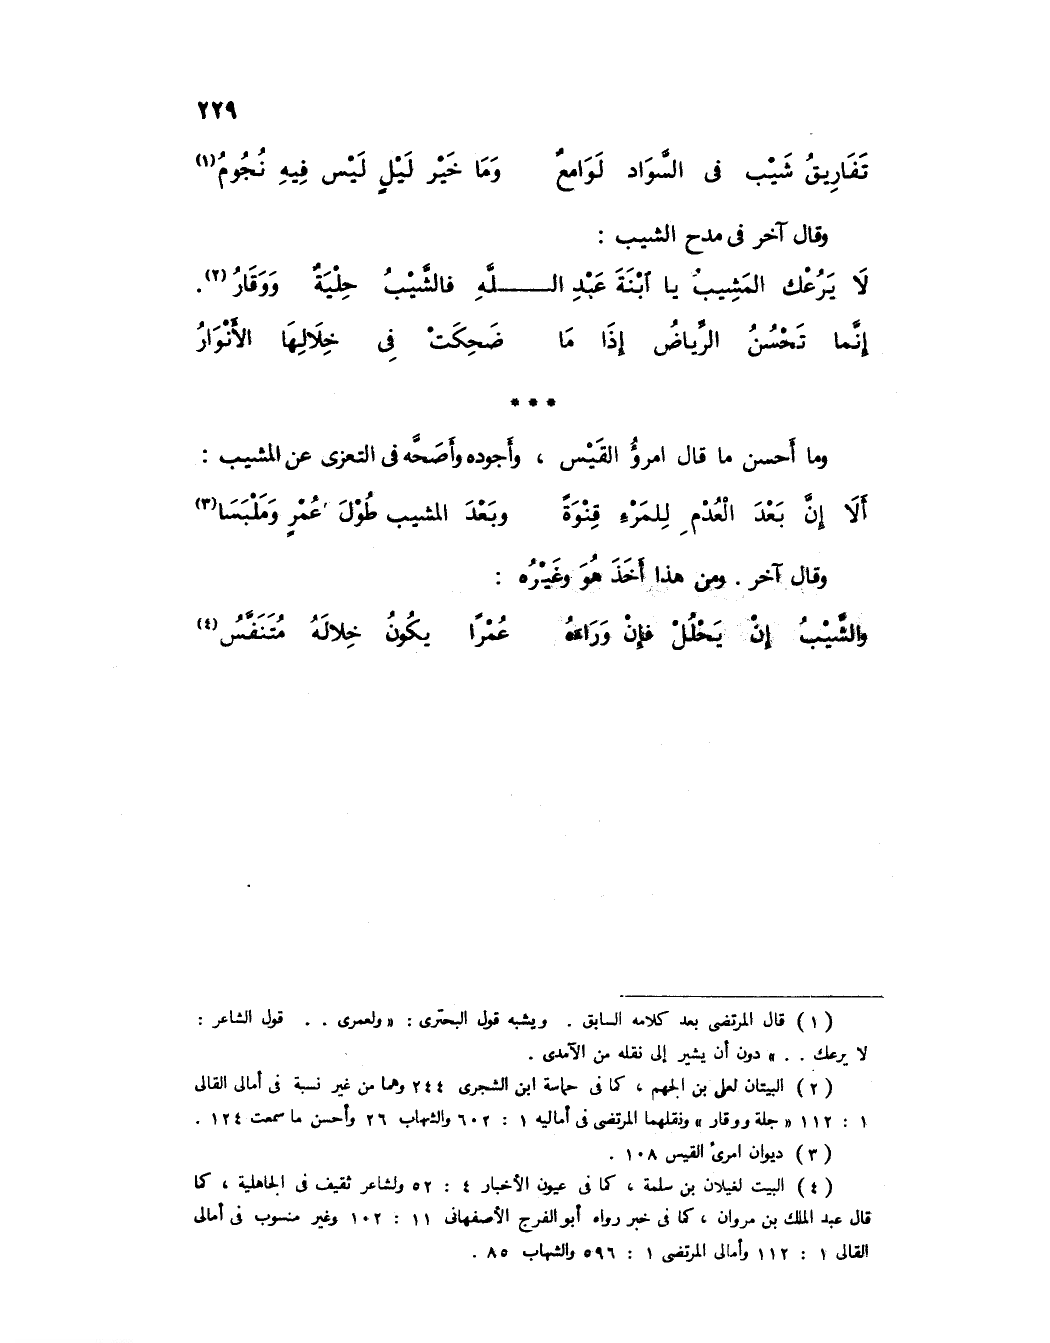 ٢٢٩
تَفَارِيقُ شَيْب فى السَّوَاد لَوَامعٌ وَمَا خَيْر لَيْلٍ لَيْس فِيهِ نُجُومُ (١)
وقال آخر فى مدح الشيب :
لَا يَرُعْك المَشِيبُ يا ٱبْنَةَ عَبْدِ الـــــلَّهِ فالشَّيْبُ حِليَةٌ وَوَقَارُ (٢).
إنَّما تَحْسُنُ الرِّياضُ إذَا مَا ضَحِكَتْ فِى خِلَالِهَا الأَنْوَارُ
* * *
وما أَحسن ما قال امرؤُ القَيْس ، وأَجوده وأَصَحَّه فى التعزى عن المشيب :
أَلَا إنَّ بَعْدَ الْعُدْمِ لِلمَرْءِ قِنْوَةً وبَعْدَ المشيب طُوْلَ عُمْرٍ وَمَلْبَسَا (٣)
وقال آخر . ومن هذا أَخَذَ هُوَ وغَيْرُه :
والشَّيْبُ إنْ يَحْلُلْ فإنْ وَرَاءهُ عُمْرًا يكُونُ خِلالَهُ مُتَنَفَّسُ (٤)
(١) قال المرتضى بعد كلامه السابق . ويشبه قول البحترى : « ولعمرى . . قول الشاعر :
لا يرعك . . » دون أن يشير إلى نقله من الآمدى .
(٢) البيتان لعلى بن الجهم ، كما فى حماسة ابن الشجرى ٢٤٤ وهما من غير نسبة فى أمالى القالى
١ : ١١٢ « جلة ووقار » ونقلهما المرتضى فى أماليه ١ : ٦٠٢ والشهاب ٢٦ وأحسن ما سمعت ١٢٤ .
(٣) ديوان امرئ القيس ١٠٨ .
(٤) البيت لغيلان بن سلمة ، كما فى عيون الأخبار ٤ : ٥٢ ولشاعر ثقيف فى الجاهلية ، كما
قال عبد الملك بن مروان ، كما فى خبر رواه أبو الفرج الأصفهانى ١١ : ١٠٢ وغير منسوب فى أمالى
القالى ١ : ١١٢ وأمالى المرتضى ١ : ٥٩٦ والشهاب ٨٥ .